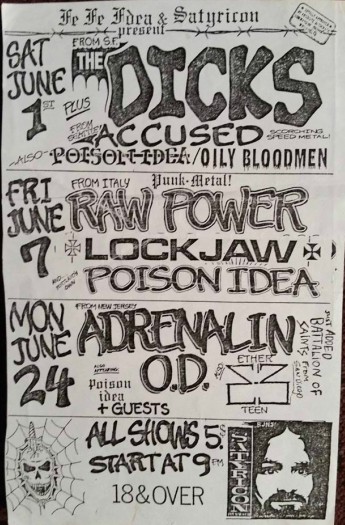 Fe Fe Fdea & Satyricon
present
SAT JUNE 1ST
PLUS
FROM S.F.
THE DICKS
FROM SEATTLE
ACCUSED
SCORCHING SPEED METAL!
~ALSO~ POISON IDEA/OILY BLOODMEN
FRI JUNE 7
FROM ITALY
Punk-Metal!
RAW POWER
LOCKJAW
POISON IDEA
MON JUNE 24
FROM NEW JERSEY
ADRENALIN O.D.
JUST ADDED BATTALION OF SAINTS FROM SAN DIEGO
ALSO APPEARING:
Poison idea
+ GUESTS
ALSO
ETHER
TEEN
ALL SHOWS 5.$
START AT 9PM
18 & OVER
SATYRICON